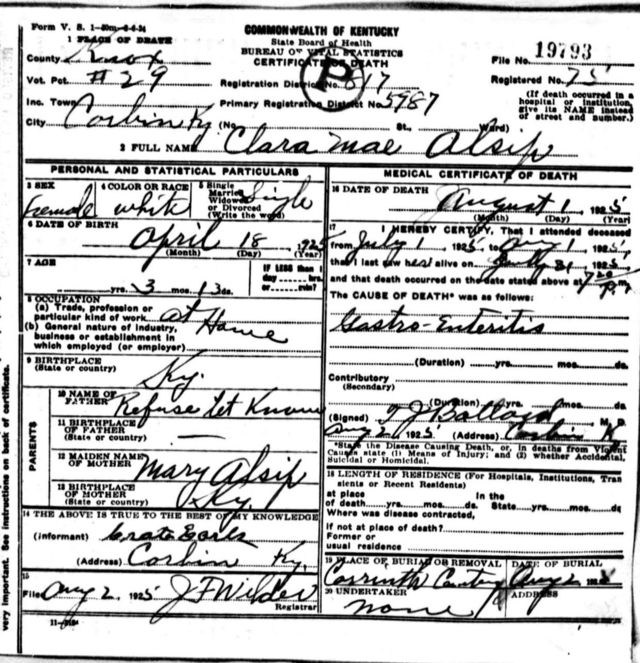 Form V. S. 1-50m-6-6-24
COMMONWEALTH OF KENTUCKY
State Board of Health
BUREAU OF VITAL STATISTICS
CERTIFICATE OF DEATH
1 PLACE OF DEATH
County Knox
File No. 19793
Vot. Pct. #29
Registration District No. 817
P
Registered No. 75
Inc. Town
Primary Registration District No. 5987
(If death occurred in a hospital or institution, give its NAME instead of street and number.)
City Corbin Ky (No. St., Ward)
2 FULL NAME Clara Mae Alsip
PERSONAL AND STATISTICAL PARTICULARS
3 SEX Female
4 COLOR OR RACE white
5 Single Married Widowed or Divorced (Write the word) Single
6 DATE OF BIRTH April 18 1925
(Month) (Day) (Year)
7 AGE
yrs. 3 mos. 13 ds.
IF LESS than 1 day hrs. or min.?
8 OCCUPATION
(a) Trade, profession or particular kind of work at Home
(b) General nature of industry, business or establishment in which employed (or employer)
9 BIRTHPLACE
(State or country) Ky.
PARENTS
10 NAME OF FATHER Refuse let Know
11 BIRTHPLACE OF FATHER (State or country) —
12 MAIDEN NAME OF MOTHER Mary Alsip
13 BIRTHPLACE OF MOTHER (State or country) Ky.
14 THE ABOVE IS TRUE TO THE BEST OF MY KNOWLEDGE
(informant)
(Address) Corbin Ky.
15
Filed Aug 2 1925 J F Wilder
Registrar
11-3184
MEDICAL CERTIFICATE OF DEATH
16 DATE OF DEATH August 1 1925
(Month) (Day) (Year)
17 I HEREBY CERTIFY, That I attended deceased
from July 1 1925, to Aug 1 1925,
that I last saw her alive on July 31 1925,
and that death occurred on the date stated above at 7 P.m.
The CAUSE OF DEATH* was as follows:
Gastro-Enteritis
(Duration) yrs. mos. ds.
Contributory
(Secondary)
(Duration) yrs. mos. ds.
(Signed) T J Ballard M. D.
Aug 2 1925 (Address) Corbin Ky
*State the Disease Causing Death, or, in deaths from Violent Causes state (1) Means of Injury; and (2) whether Accidental, Suicidal or Homicidal.
18 LENGTH OF RESIDENCE (For Hospitals, Institutions, Transients or Recent Residents)
at place of death yrs. mos. ds. In the State yrs. mos. ds.
Where was disease contracted,
if not at place of death?
Former or usual residence
19 PLACE OF BURIAL OR REMOVAL
DATE OF BURIAL
Corrinth Aug 2 1925
20 UNDERTAKER none
ADDRESS
very important. See instructions on back of certificate.